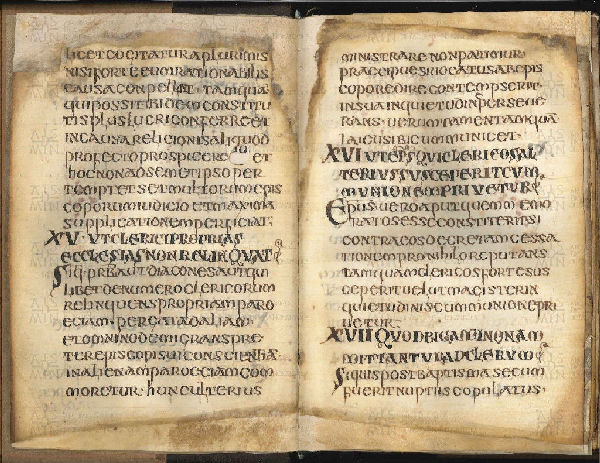 licet cogitatur a plurimis
nisi forte eum rationabilis
causa conpellat tamqua
qui possit ibidem constitu
tis plus lucri conferre et
in causa religionis aliquod
profecto prospicere et
hoc non a semetipso per
temptet sed multorum epis
coporum iudicio et maxima
supplicatione perficiat
XV UT CLERICI PROPRIAS
ECCLESIAS NON RELINQUAT
Si quis prb aut diacones aut qui
libet de numero clericorum
relinquens propriam paro
eciam pergat ad aliam
et omnino demigrans pre
ter episcopi sui conscientia
in aliena parrocciam com
moretur hunc ulterius
ministrare non patimur
praecipue si uocatus ab epis
copo redire contempserit
in sua inquietudin perseue
rans uerum tamen tamqua
laicus ibi communicet
XVI UT EPS QUI CLERICOS AL
TERIUS SUSCEPERIT COM
MUNIONE PRIVETUR
Epus uero aput quem memo
ratos esse constiterit si
contra eos decretam cessa
tionem pro nihilo reputans
tamquam clericos forte sus
ceperit uelut magister in
quietudinis communione pri
uetur
XVII QUOD BIGAMI NON AM
MITTANTUR AD CLERUM
Si quis post baptisma secun
fuerit nuptiis copulatus